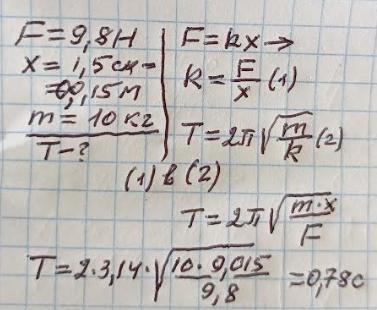 F = 9,8Н
x = 1,5см =
= 0,15м
m = 10кг
T - ?
F = kx →
k = F/x (1)
T = 2π√(m/k) (2)
(1) в (2)
T = 2π√(m·x/F)
T = 2·3,14·√(10·0,015/9,8) = 0,78с